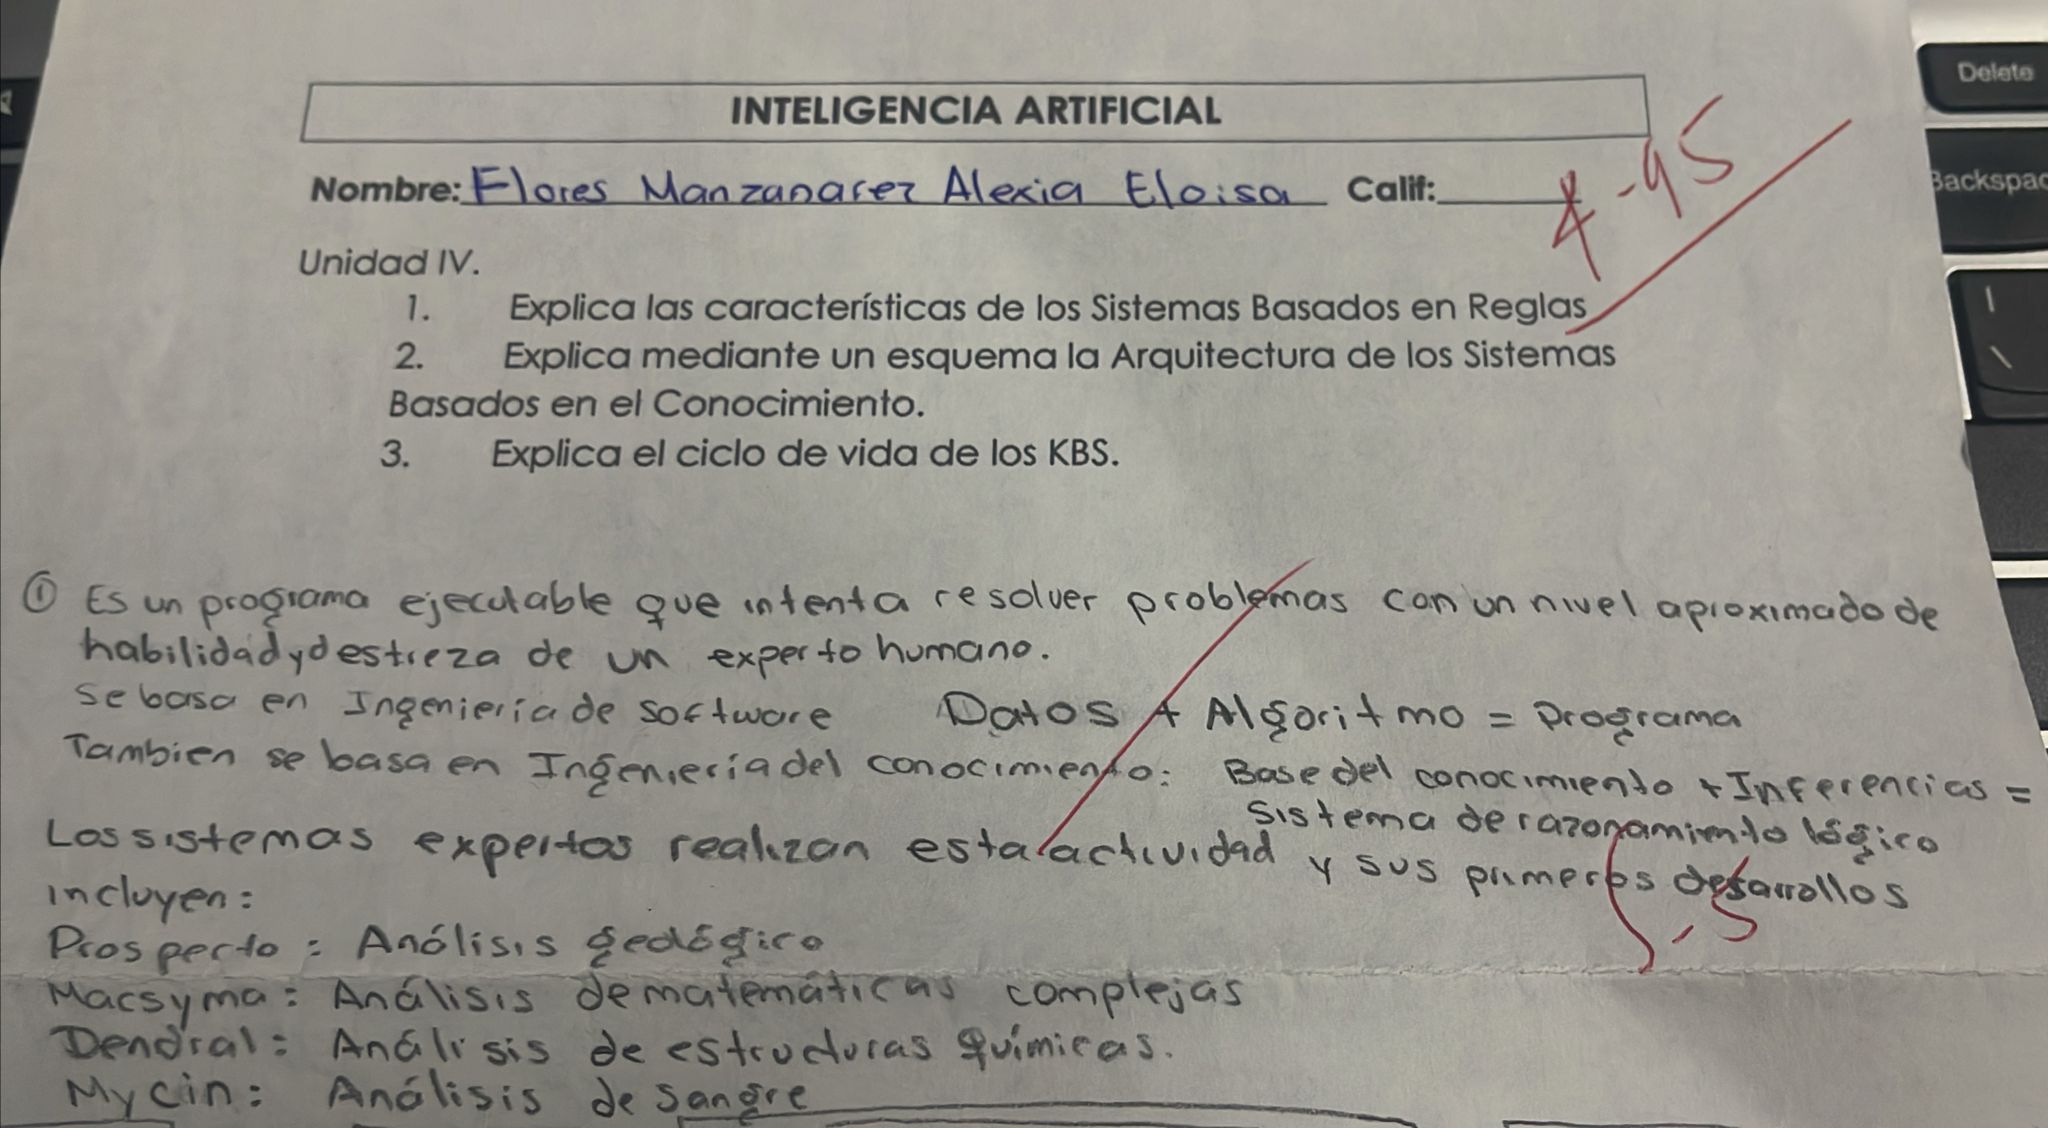 INTELIGENCIA ARTIFICIAL
Nombre: Flores Manzanarez Alexia Eloisa Calif:
Unidad IV.
1. Explica las características de los Sistemas Basados en Reglas
2. Explica mediante un esquema la Arquitectura de los Sistemas
Basados en el Conocimiento.
3. Explica el ciclo de vida de los KBS.
① Es un programa ejecutable que intenta resolver problemas con un nivel aproximado de
habilidad y destreza de un experto humano.
Se basa en Ingeniería de software Datos + Algoritmo = Programa
Tambien se basa en Ingeniería del conocimiento: Base del conocimiento + Inferencias =
Sistema de razonamiento lógico
Los sistemas expertos realizan esta actividad y sus primeros desarrollos
incluyen:
Prospecto: Análisis geológico
Macsyma: Análisis de matemáticas complejas
Dendral: Análisis de estructuras químicas.
Mycin: Análisis de sangre
Delete
Backspac
|
\